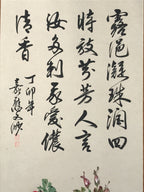 露浥凝珠润四
时放芬芳人言
汝多刺我爱儂
清香
丁卯年